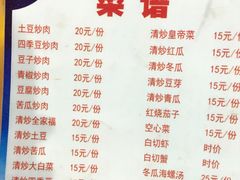 菜谱
土豆炒肉 20元/份
四季豆炒肉 20元/份
豆子炒肉 20元/份
青椒炒肉 20元/份
豆腐炒肉 20元/份
苦瓜炒肉 20元/份
清炒全家福 20元/份
清炒土豆 15元/份
清炒苦瓜 15元/份
清炒大白菜 15元/份
清炒皇帝菜 15元/份
清炒红瓜 15元/
清炒冬瓜 15元/
清炒豆芽 15元/
清炒青瓜 15元/
红烧茄子 15元/
空心菜 15元/
白切虾 时价
白切蟹 时价
冬瓜海螺汤 25元/